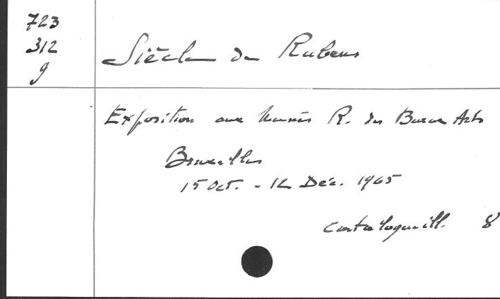 723
312
g
Siècle de Rubens
Exposition aux Musées R. des Beaux Arts
Bruxelles
15 Oct. - 12 Déc. 1965
Catalogue ill. 8